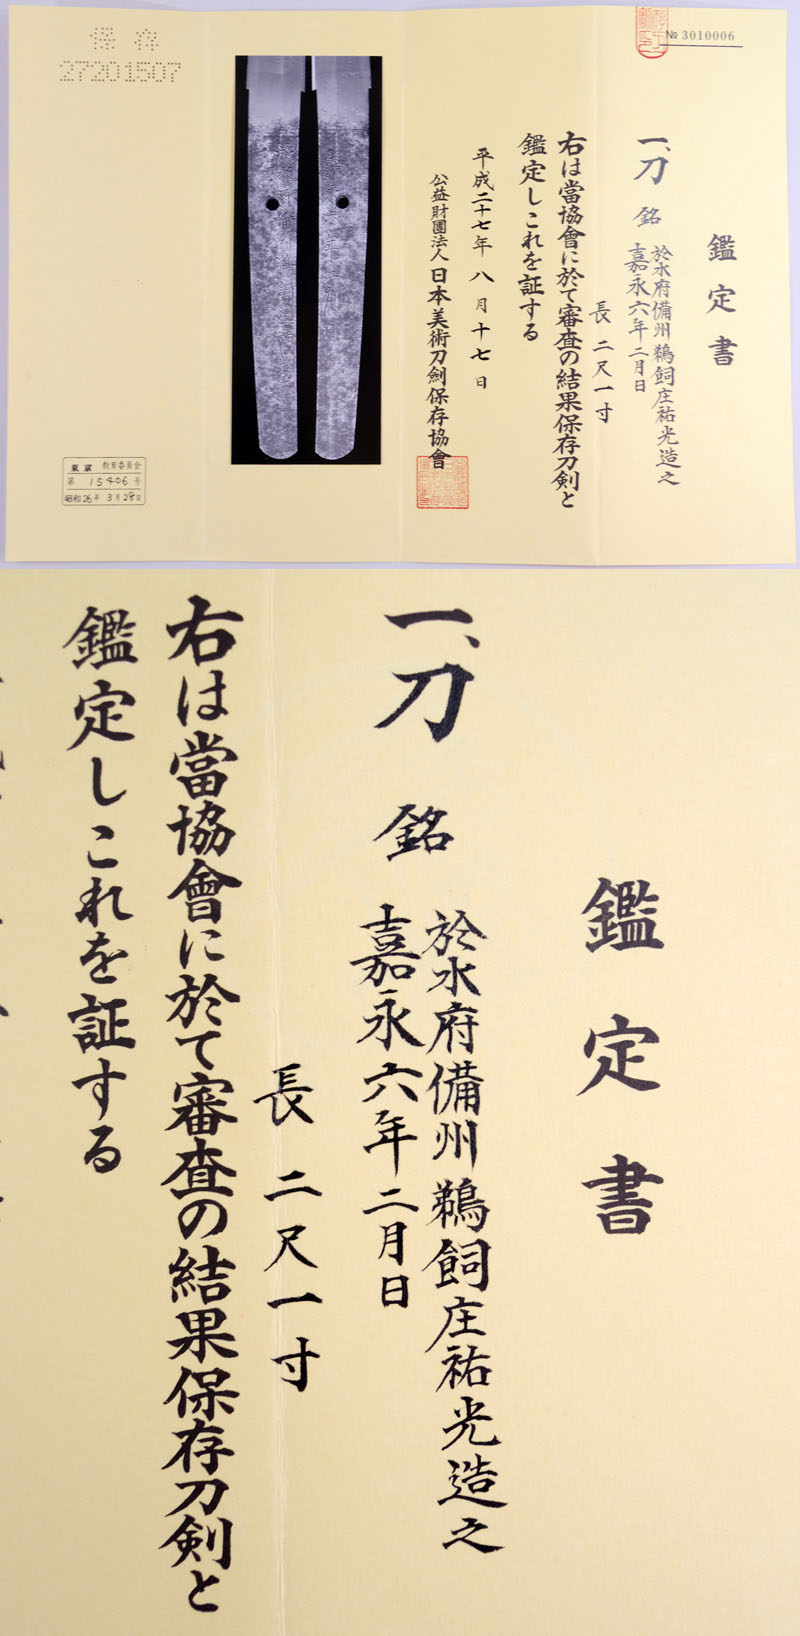 № 3010006
鑑定書
一、刀 銘
於水府備州鵜飼庄祐光造之
嘉永六年二月日
長 二尺一寸
右は當協會に於て審査の結果保存刀剣と
鑑定しこれを証する
平成二十七年 八月十七日
公益財團法人 日本美術刀劍保存協會
保存
27201507
東京 教育委員会
第 15406 号
昭和26年 3月28日
鑑定書
一、刀 銘
於水府備州鵜飼庄祐光造之
嘉永六年二月日
長 二尺一寸
右は當協會に於て審査の結果保存刀剣と
鑑定しこれを証する